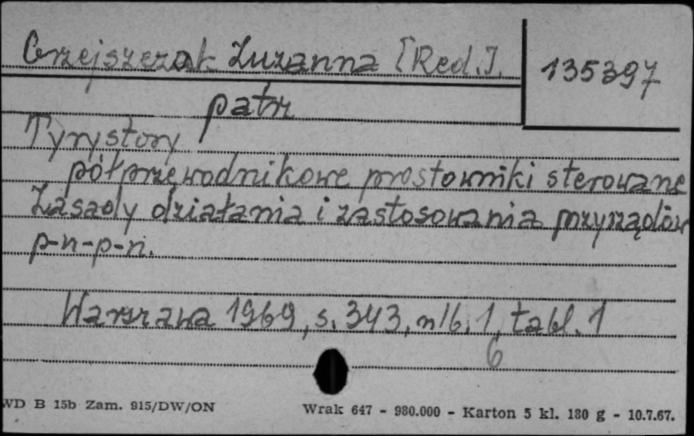 Grzejszczak Zuzanna [Red.].
135397
patrz
Tyrystory
półprzewodnikowe prostowniki sterowane
Zasady działania i zastosowania przyrządów
p-n-p-n.
Warszawa 1969, s. 343, nlb. 1, tabl. 1
6
WD B 15b Zam. 915/DW/ON
Wrak 647 - 980.000 - Karton 5 kl. 180 g - 10.7.67.